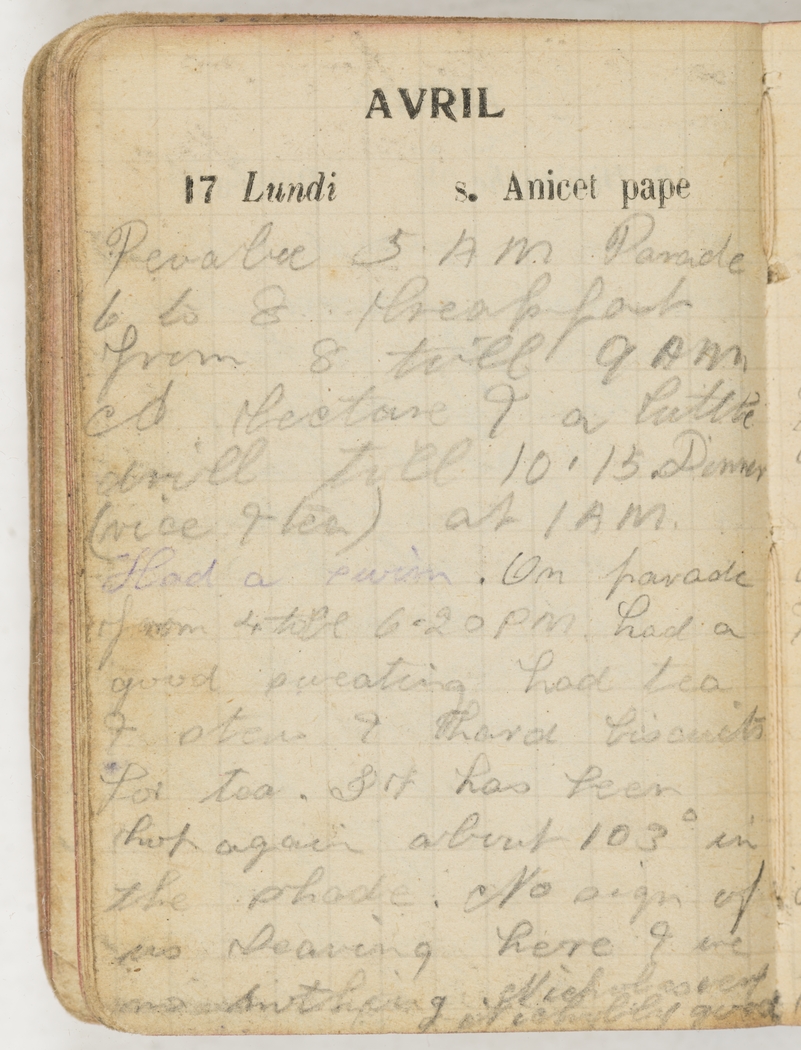 AVRIL
17 Lundi s. Anicet pape
Revalee 5 AM Parade
6 to 8. Breakfast
from 8 till 9 AM
Lecture & a little
drill till 10.15. Dinner
(rice & tea) at 1 AM.
Had a swim. On parade
from 4 till 6.20 PM had a
good sweating had tea
& stew & hard biscuits
for tea. It has been
hot again about 103° in
the shade. No sign of
us leaving here & we